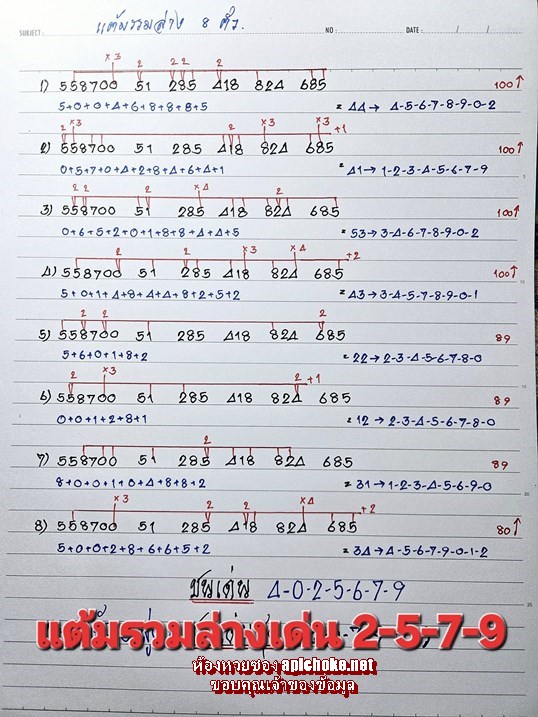 แต้มรวมล่าง 8 ตัว.
SUBJECT : NO : DATE : / /
x3 2 2 2 2
1) 558700 51 285 418 824 685 100↑
5+0+0+4+6+8+8+8+5 = 44 → 4-5-6-7-8-9-0-2
2 x3 2 x3 x3 +1
2) 558700 51 285 418 824 685 100↑
0+5+7+0+4+2+8+4+6+4+1 = 41 → 1-2-3-4-5-6-7-9
2 2 2 x4 2
3) 558700 51 285 418 824 685 100↑
0+6+5+2+0+1+8+8+4+4+5 = 53 → 3-4-6-7-8-9-0-2
2 2 x3 x4 +2
4) 558700 51 285 418 824 685 100↑
5+0+1+4+8+4+4+8+2+5+2 = 43 → 3-4-5-7-8-9-0-1
2 2 2
5) 558700 51 285 418 824 685 89
5+6+0+1+8+2 = 22 → 2-3-4-5-6-7-8-0
2 x3 2 +1
6) 558700 51 285 418 824 685 89
0+0+1+2+8+1 = 12 → 2-3-4-5-6-7-8-0
2
7) 558700 51 285 418 824 685 89
8+0+0+1+0+4+8+8+2 = 31 → 1-2-3-4-5-6-9-0
x3 2 2 x4 +2
8) 558700 51 285 418 824 685 80↑
5+0+0+2+8+6+6+5+2 = 34 → 4-5-6-7-9-0-1-2
ชนเด่น 4-0-2-5-6-7-9
แต้มรวมล่างเด่น 2-5-7-9
ห้องหวยซอง apichoke.net
ขอบคุณเจ้าของข้อมูล